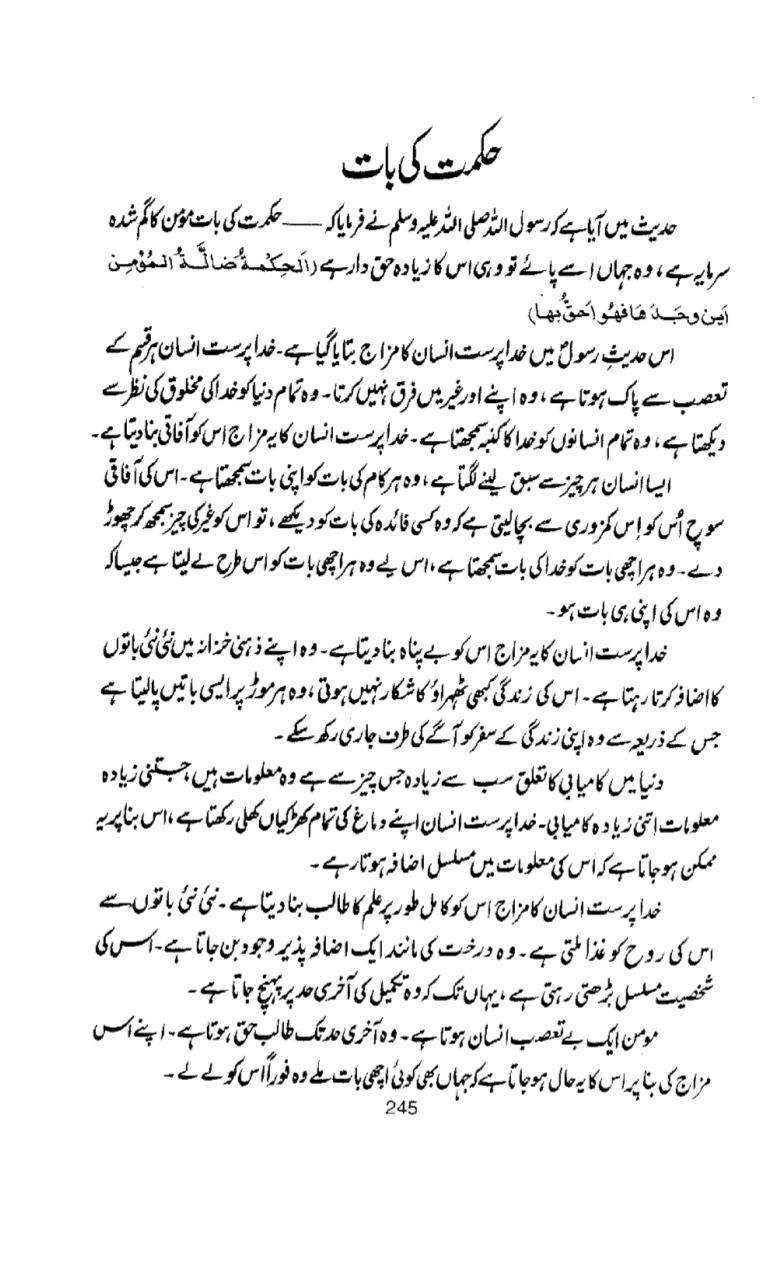 حکمت کی بات
حدیث میں آیا ہے کہ رسول اللہ صلی اللہ علیہ وسلم نے فرمایا کہ —— حکمت کی بات مؤمن کا گم شدہ
سرمایہ ہے ، وہ جہاں اسے پائے تو وہی اس کا زیادہ حق دار ہے (الحِكْمةُ ضالَّةُ المُؤْمِنِ
اَين وجَدَ هَا فهُو اَحقُّ بها)
اس حدیثِ رسولؐ میں خدا پرست انسان کا مزاج بتایا گیا ہے۔ خدا پرست انسان ہر قسم کے
تعصب سے پاک ہوتا ہے ، وہ اپنے اور غیر میں فرق نہیں کرتا۔ وہ تمام دنیا کو خدا کی مخلوق کی نظر سے
دیکھتا ہے ، وہ تمام انسانوں کو خدا کا کنبہ سمجھتا ہے۔ خدا پرست انسان کا یہ مزاج اس کو آفاقی بنا دیتا ہے۔
ایسا انسان ہر چیز سے سبق لینے لگتا ہے ، وہ ہر کام کی بات کو اپنی بات سمجھتا ہے۔ اس کی آفاقی
سوچ اُس کو اِس کمزوری سے بچا لیتی ہے کہ وہ کسی فائدہ کی بات کو دیکھے ، تو اس کو غیر کی چیز سمجھ کر چھوڑ
دے۔ وہ ہر اچھی بات کو خدا کی بات سمجھتا ہے ، اس لیے وہ ہر اچھی بات کو اس طرح لے لیتا ہے جیسا کہ
وہ اس کی اپنی ہی بات ہو۔
خدا پرست انسان کا یہ مزاج اس کو بے پناہ بنا دیتا ہے۔ وہ اپنے ذہنی خزانہ میں نئی نئی باتوں
کا اضافہ کرتا رہتا ہے۔ اس کی زندگی کبھی ٹھہراؤ کا شکار نہیں ہوتی ، وہ ہر موڑ پر ایسی باتیں پا لیتا ہے
جس کے ذریعہ سے وہ اپنی زندگی کے سفر کو آگے کی طرف جاری رکھ سکے۔
دنیا میں کامیابی کا تعلق سب سے زیادہ جس چیز سے ہے وہ معلومات ہیں ، جتنی زیادہ
معلومات اتنی زیادہ کامیابی۔ خدا پرست انسان اپنے دماغ کی تمام کھڑکیاں کھلی رکھتا ہے ، اس بنا پر یہ
ممکن ہو جاتا ہے کہ اس کی معلومات میں مسلسل اضافہ ہوتا رہے۔
خدا پرست انسان کا مزاج اس کو کامل طور پر علم کا طالب بنا دیتا ہے۔ نئی نئی باتوں سے
اس کی روح کو غذا ملتی ہے۔ وہ درخت کی مانند ایک اضافہ پذیر وجود بن جاتا ہے۔ اس کی
شخصیت مسلسل بڑھتی رہتی ہے ، یہاں تک کہ وہ تکمیل کی آخری حد پر پہنچ جاتا ہے۔
مومن ایک بے تعصب انسان ہوتا ہے۔ وہ آخری حد تک طالب حق ہوتا ہے۔ اپنے اس
مزاج کی بنا پر اس کا یہ حال ہو جاتا ہے کہ جہاں بھی کوئی اچھی بات ملے وہ فوراً اس کو لے لے۔
245